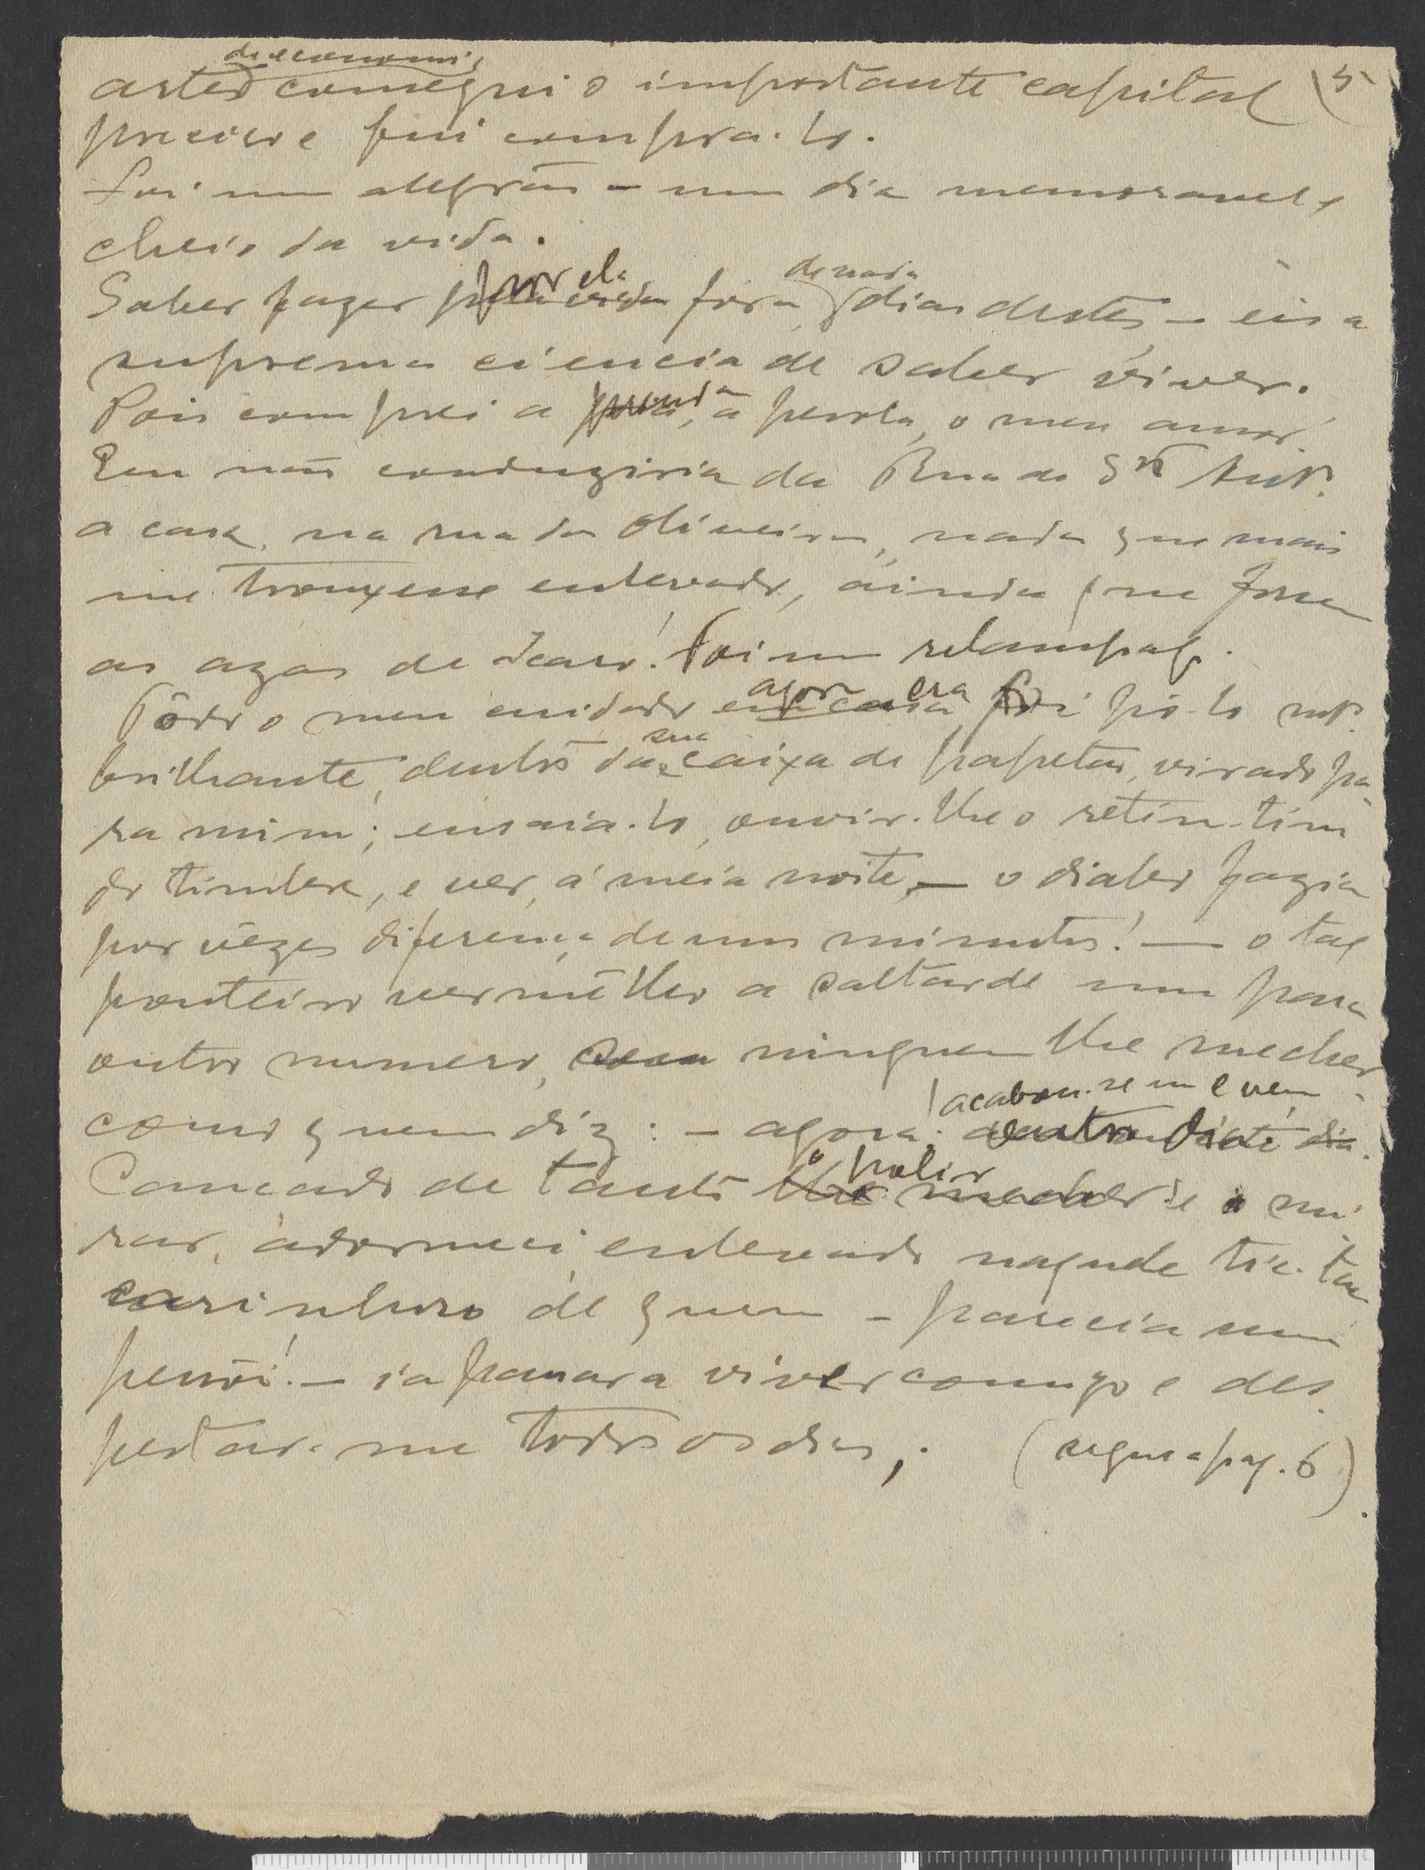 de economia
artes consegui o importante capital (5
preciso e fui compra-lo.
Foi um alegrão – um dia memoravel e
cheio da vida.
Saber fazer por ela fora, de nada dias destes – eis a
suprema ciencia de saber viver.
Pois comprei a prenda, a perola, o meu amor!
Eu não conduziria da Rua de Stº Antº.
a casa, na rua da Oliveira, nada que mais
me trouxesse enlevado, ainda que fossem
as azas de Icaro! Foi um relampago.
Todo o meu cuidado agora era pô-lo mtº.
brilhante, dentro da sua caixa de papelão, virado pa-
ra mim; ensaia-lo, ouvir-lhe o retin-tim
do timbre, e ver, á meia noite, – o diabo fazia
por vêzes diferença de uns minutos! – o tal
ponteiro vermêlho a saltar de um para
outro numero, sem ninguem lhe mecher
acabou-se um e vem
como quem diz: – agora: outro dia.
Cançado de tanto o polir e o mi-
rar, adormeci enlevado naquele tic-tac
carinhoso de quem – parecia um
– ia passar a viver comigo e des-
pertar-me todos os dias,. (segue a pag. 6).